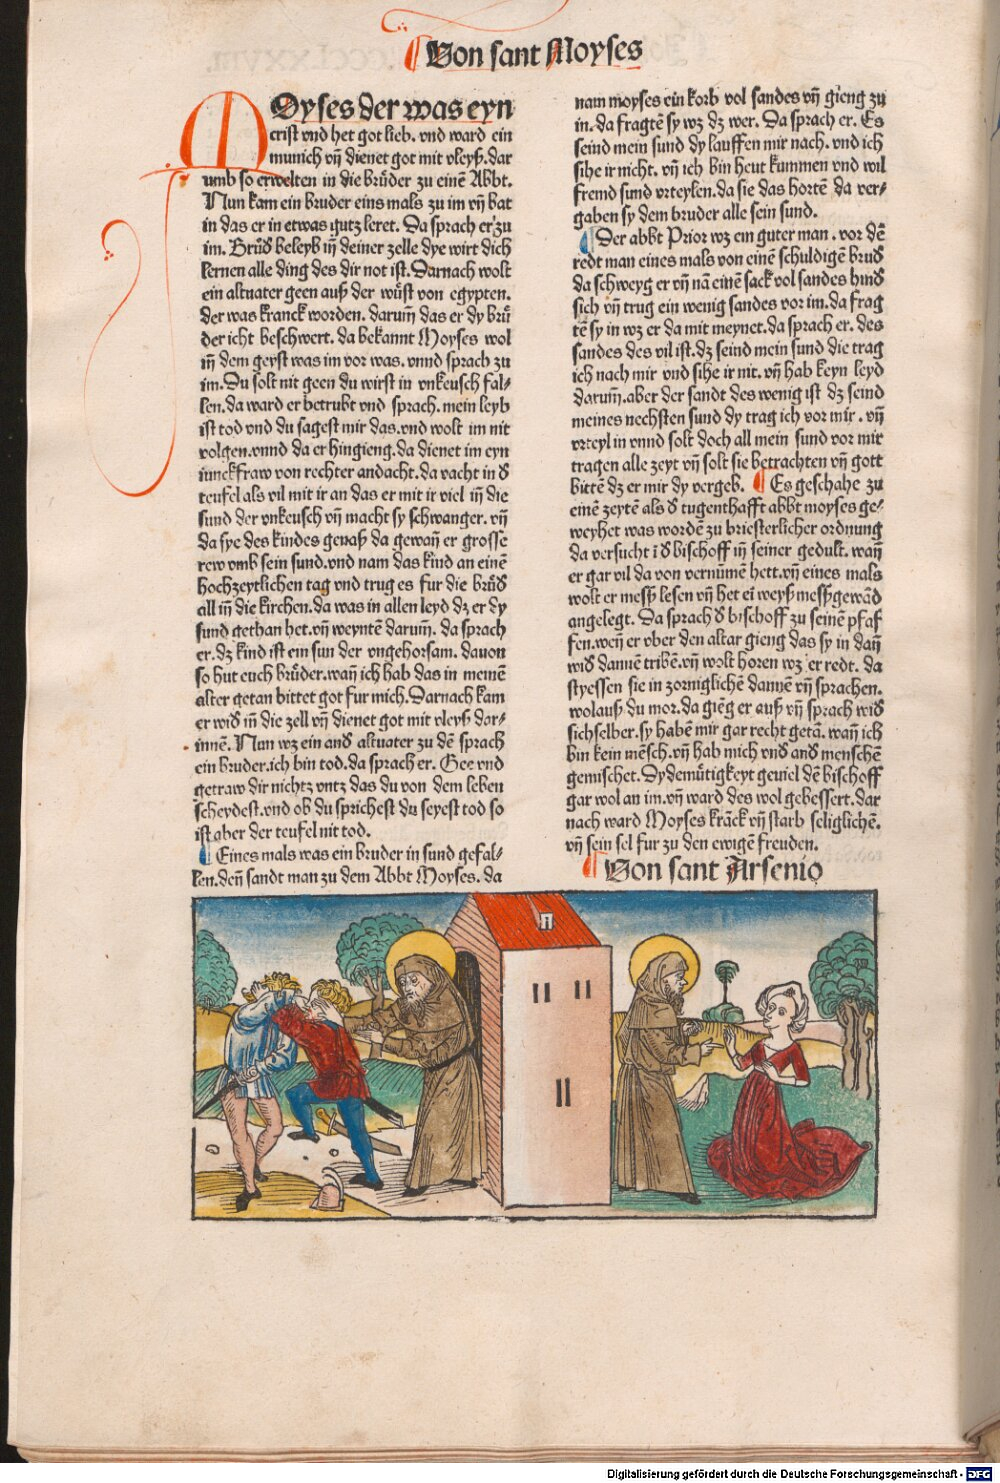 Von sant Moyses
MOyses der was eyn
crist vnd het got lieb. vnd ward ein
munich vñ dienet got mit vleyß. dar
umb so erwelten in die brůder zu einē Abbt.
Nun kam ein bruder eins mals zu im vñ bat
in das er in etwas gutz leret. Da sprach er zu
im. Brůď beleyb iñ deiner zelle dye wirt dich
lernen alle ding des dir not ist. Darnach wolt
ein altuater geen auß der wůst von egypten.
der was kranck worden. darum̄ das er dy brů
der icht beschwert. da bekannt Moyses wol
iñ dem geyst was im vor was. vnnd sprach zu
im. Du solt nit geen du wirst in vnkeusch fal⸗
len. da ward er betrubt vnd sprach. mein leyb
ist tod vnd du sagest mir das. vnd wolt im nit
volgen. vnnd da er hingieng. da dienet im eyn
iunckfraw von rechter andacht. da vacht in ď
teufel als vil mit ir an das er mit ir viel iñ die
sund der vnkeusch vñ macht sy schwanger. vñ
da sye des kindes genaß da gewañ er grosse
rew vmb sein sund. vnd nam das kind an einē
hochzeytlichen tag vnd trug es fur die brůď
all iñ die kirchen. da was in allen leyd dz er dy
sund gethan het. vñ weyntē darum̄. da sprach
er. dz kind ist ein sun der vngehorsam. dauon
so hut euch brůder. wañ ich hab das in meinē
alter getan bittet got fur mich. Darnach kam
er wiď iñ die zell vñ dienet got mit vleyß dar⸗
innē. Nun wz ein anď altuater zu dē sprach
ein bruder. ich bin tod. da sprach er. Gee vnd
getraw dir nichtz vntz das du von dem leben
scheydest. vnd ob du sprichest du seyest tod so
ist aber der teufel nit tod.
¶ Eines mals was ein bruder in sund gefal⸗
len. deñ sandt man zu dem Abbt Moyses. da
nam moyses ein korb vol sandes vñ gieng zu
in. da fragtē sy wz dz wer. Da sprach er. Es
seind mein sund dy lauffen mir nach. vnd ich
sihe ir nicht. vñ ich bin heut kummen vnd wil
fremd sund vrteylen. da sie das hortē da ver⸗
gaben sy dem bruder alle sein sund.
¶ Der abbt Prior wz ein guter man. vor dē
redt man eines mals von einē schuldigē bruď
da schweyg er vñ nā einē sack vol sandes hinď
sich vñ trug ein wenig sandes vor im. da frag
tē sy in wz er da mit meynet. da sprach er. des
sandes des vil ist. dz seind mein sund die trag
ich nach mir vnd sihe ir nit. vñ hab keyn leyd
darum̄. aber der sandt des wenig ist dz seind
meines nechsten sund dy trag ich vor mir. vñ
vrteyl in vnnd solt doch all mein sund vor mir
tragen alle zeyt vñ solt sie betrachten vñ gott
bittē dz er mir dy vergeb. ¶ Es geschahe zu
einē zeytē als ď tugenthafft abbt moyses ge⸗
weyhet was wordē zu briesterlicher ordnung
da versucht ī ď bischoff iñ seiner gedult. wañ
er gar vil da von vernūmē hett. vñ eines mals
wolt er messꝫ lesen vñ het ei weyß meßgewād
angelegt. Da sprach ď bischoff zu seinē pfaf
fen. weñ er vber den altar gieng das sy in dañ
wiď dannē tribē. vñ wolt horen wz er redt. da
styessen sie in zorniglichē dannē vñ sprachen.
wolauß du mor. da giēg er auß vñ sprach wiď
sich selber. sy habē mir gar recht getā. wañ ich
bin kein mēsch. vñ hab mich vnď anď menschē
gemischet. Dy demůtigkeyt geuiel dē bischoff
gar wol an im. vñ ward des wol gebessert. dar
nach ward Moyses krāck vñ starb seliglichē.
vñ sein sel fur zu den ewigē freuden.
¶ Von sant Arsenio
Digitalisierung gefördert durch die Deutsche Forschungsgemeinschaft - DFG